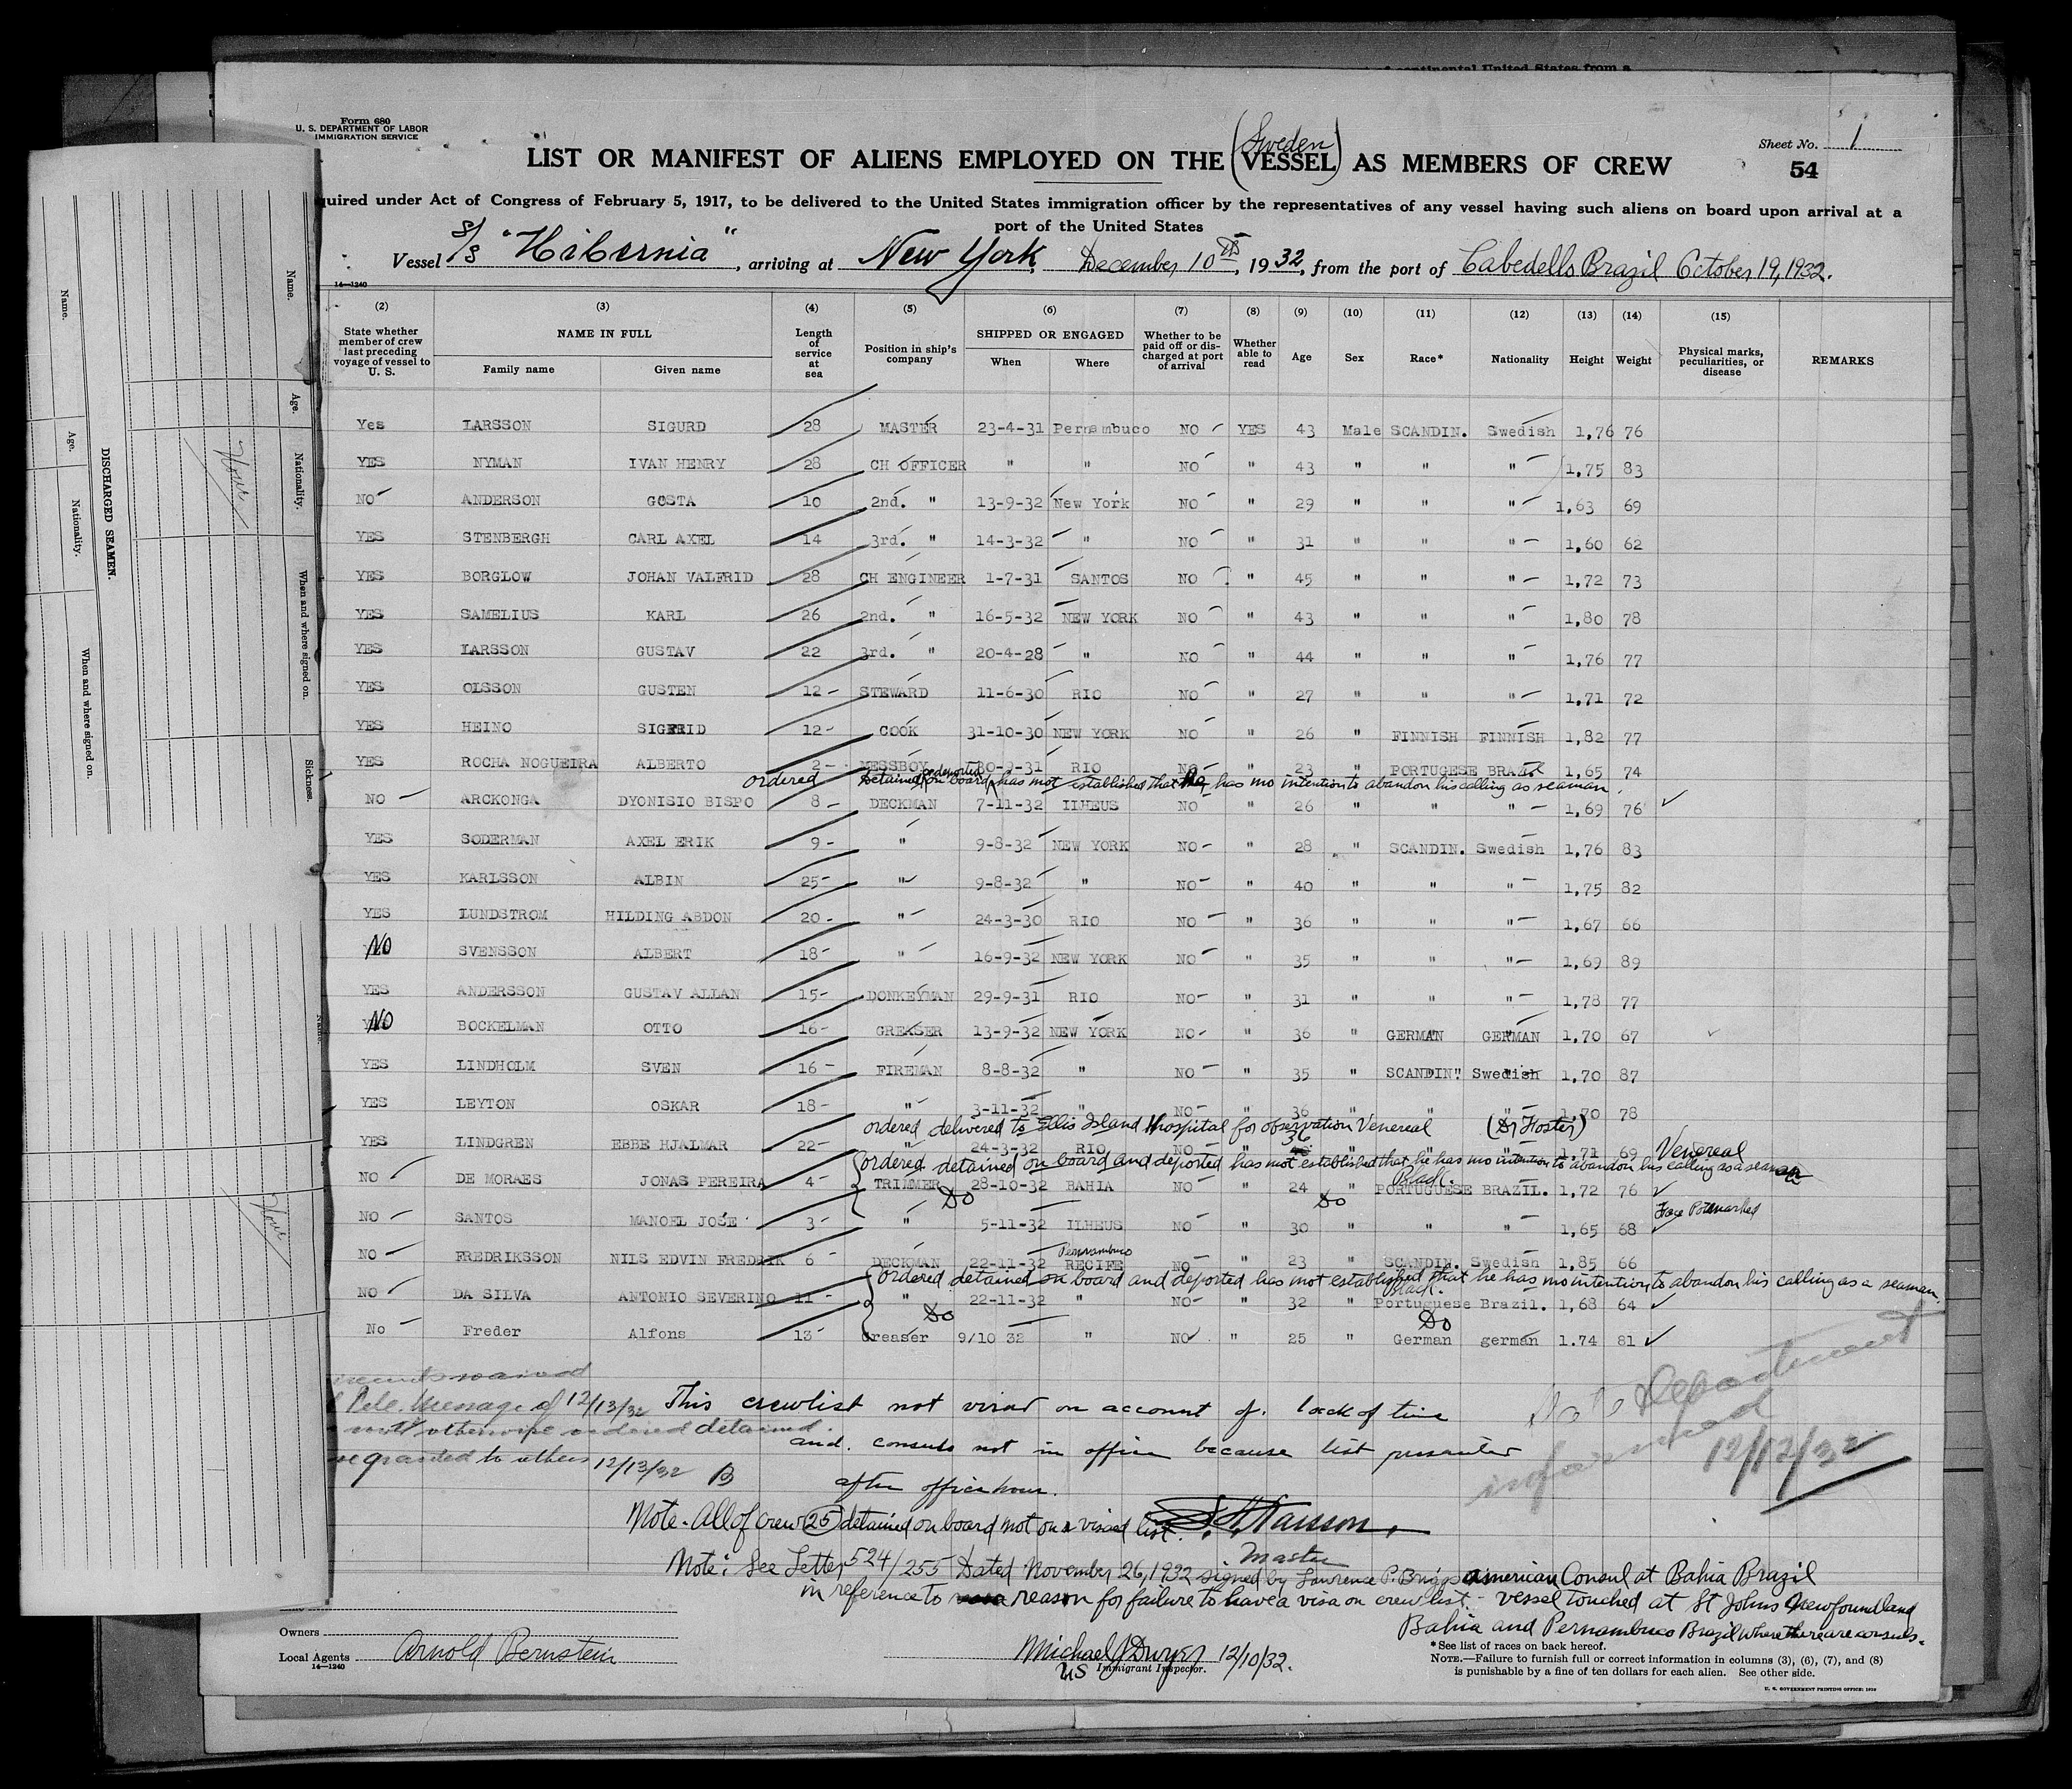 of continental United States from a
Form 680
U. S. DEPARTMENT OF LABOR
IMMIGRATION SERVICE
Sheet No. 1
54
(Sweden)
LIST OR MANIFEST OF ALIENS EMPLOYED ON THE VESSEL AS MEMBERS OF CREW
quired under Act of Congress of February 5, 1917, to be delivered to the United States immigration officer by the representatives of any vessel having such aliens on board upon arrival at a
port of the United States
Vessel S/S "Hibernia", arriving at New York, December 10th, 1932, from the port of Cabedello Brazil October 19, 1932.
14—1240
(2) (3) (4) (5) (6) (7) (8) (9) (10) (11) (12) (13) (14) (15)
State whether member of crew last preceding voyage of vessel to U. S.
NAME IN FULL
Family name Given name
Length of service at sea
Position in ship's company
SHIPPED OR ENGAGED
When Where
Whether to be paid off or discharged at port of arrival
Whether able to read
Age Sex Race* Nationality Height Weight
Physical marks, peculiarities, or disease
REMARKS
Yes LARSSON SIGURD 28 MASTER 23-4-31 Pernambuco NO YES 43 Male SCANDIN. Swedish 1,76 76
YES NYMAN IVAN HENRY 28 CH OFFICER " " NO " 43 " " " 1,75 83
NO ANDERSON GOSTA 10 2nd. " 13-9-32 New York NO " 29 " " " 1,63 69
YES STENBERGH CARL AXEL 14 3rd. " 14-3-32 " NO " 31 " " " 1,60 62
YES BORGLOW JOHAN VALFRID 28 CH ENGINEER 1-7-31 SANTOS NO " 45 " " " 1,72 73
YES SAMELIUS KARL 26 2nd. " 16-5-32 NEW YORK NO " 43 " " " 1,80 78
YES LARSSON GUSTAV 22 3rd. " 20-4-28 " NO " 44 " " " 1,76 77
YES OLSSON GUSTEN 12 STEWARD 11-6-30 RIO NO " 27 " " " 1,71 72
YES HEINO SIGFRID 12 COOK 31-10-30 NEW YORK NO " 26 " FINNISH FINNISH 1,82 77
YES ROCHA NOGUEIRA ALBERTO 2 MESSBOY 30-9-31 RIO NO " 23 " PORTUGESE BRAZIL 1,65 74
ordered Detained on board & deported has not established that he has no intention to abandon his calling as seaman.
NO ARCKONGA DYONISIO BISPO 8 DECKMAN 7-11-32 ILHEUS NO " 26 " " " 1,69 76
YES SODERMAN AXEL ERIK 9 " 9-8-32 NEW YORK NO " 28 " SCANDIN. Swedish 1,76 83
YES KARLSSON ALBIN 25 " 9-8-32 " NO " 40 " " " 1,75 82
YES LUNDSTROM HILDING ABDON 20 " 24-3-30 RIO NO " 36 " " " 1,67 66
NO SVENSSON ALBERT 18 " 16-9-32 NEW YORK NO " 35 " " " 1,69 89
YES ANDERSSON GUSTAV ALLAN 15 DONKEYMAN 29-9-31 RIO NO " 31 " " " 1,78 77
NO BOCKELMAN OTTO 16 GREASER 13-9-32 NEW YORK NO " 36 " GERMAN GERMAN 1,70 67
YES LINDHOLM SVEN 16 FIREMAN 8-8-32 " NO " 35 " SCANDIN. Swedish 1,70 87
YES LEYTON OSKAR 18 " 3-11-32 " NO " 36 " " " 1,70 78
ordered delivered to Ellis Island Hospital for observation Venereal (Dr Foster)
YES LINDGREN EBBE HJALMAR 22 " 24-3-32 RIO NO " 36 " " " 1,71 69 Venereal
ordered detained on board and deported has not established that he has no intention to abandon his calling as a seaman
NO DE MORAES JONAS PEREIRA 4 TRIMMER 28-10-32 BAHIA NO " 24 " Black. PORTUGUESE BRAZIL. 1,72 76
Do Do
NO SANTOS MANOEL JOSE 3 " 5-11-32 ILHEUS NO " 30 " " " 1,65 68 Face Pockmarked
NO FREDRIKSSON NILS EDVIN FREDRIK 6 DECKMAN 22-11-32 Pernambuco RECIFE NO " 23 " SCANDIN. Swedish 1,85 66
ordered detained on board and deported has not established that he has no intention to abandon his calling as a seaman.
NO DA SILVA ANTONIO SEVERINO 11 " 22-11-32 " NO " 32 " Black. Portuguese Brazil. 1,68 64
Do Do
No Freder Alfons 13 Greaser 9/10 32 " NO " 25 " German german 1.74 81
waived
Tele. Message of 12/13/32
not otherwise ordered detained.
granted to others 12/13/32 B
This crewlist not visad on account of lack of time
and consuls not in office because list presented
after office hour.
Department
informed
12/12/32
Note - All of crew (25) detained on board not on a visaed list.
S. Larsson,
Master
Note: See Letter 524/255 Dated November 26, 1932 signed by Lawrence P. Briggs American Consul at Bahia Brazil
in reference to reason for failure to have a visa on crew list. - Vessel touched at St Johns Newfoundland
Bahia and Pernambuco Brazil where there are consuls.
Owners
Local Agents Arnold Bernstein
14—1240
Michael J Dwyer 12/10/32.
US Immigrant Inspector.
*See list of races on back hereof.
NOTE.—Failure to furnish full or correct information in columns (3), (6), (7), and (8)
is punishable by a fine of ten dollars for each alien. See other side.
U. S. GOVERNMENT PRINTING OFFICE: 1929
DISCHARGED SEAMEN.
Name. Age. Nationality. When and where signed on.
Name. Age. Nationality. When and where signed on. Sickness.
Name.